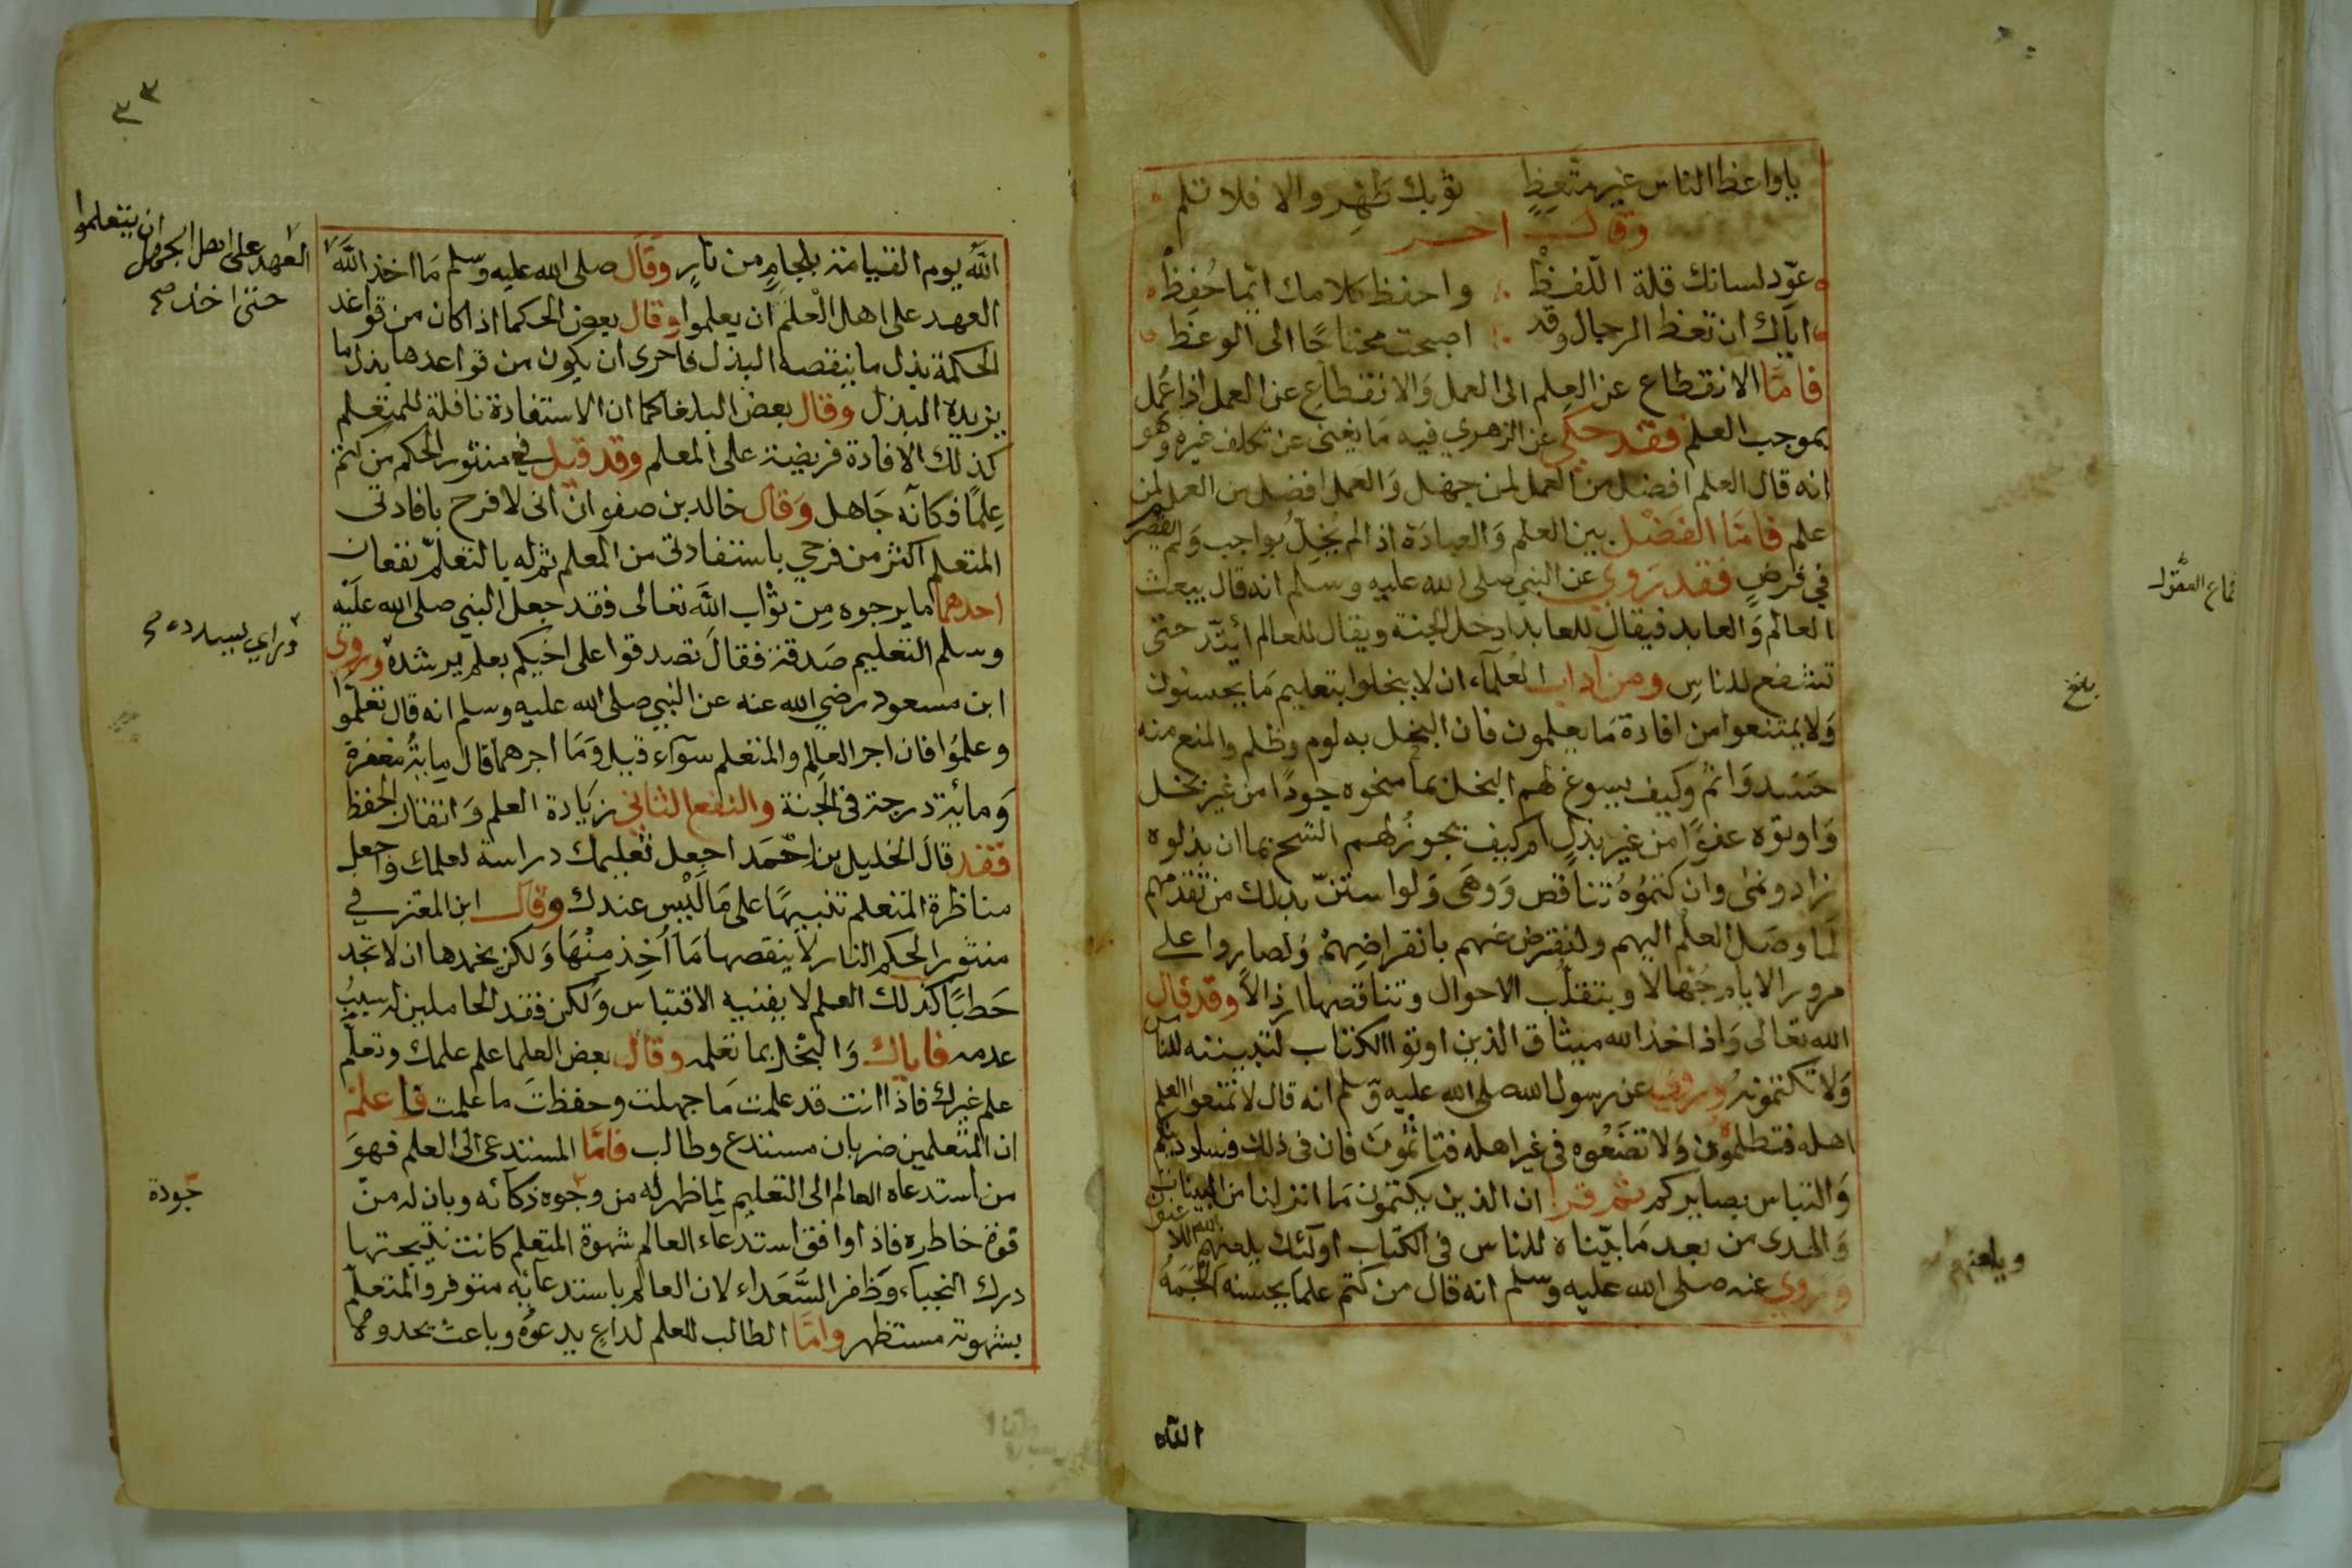 ياواعظ الناس غير متعظٍ ثوبك طَهِّر والا فلا تلم
وقال اخر
عوّد لسانك قلة اللّفظْ واحفظ كلامك انّما حُفِظْ
اياك ان تعظ الرجال وقد اصبحت محتاجًا الى الوعظ
فامّا الانقطاع عن العِلم الى العمل وَالانقطاع عن العمل اذا عُمل
بموجب العلم فقد حكي عن الزهري فيه مَا يغنى عن تكلف غيره وهو
انه قال العلم افضل من العمل لمن جهل وَالعمل افضل من العمل لمن
علم فامّا الفَضْل بين العلم وَالعبادة اذ الم يُخِلّ بواجب وَلم يقصّر
في فرضٍ فقد رَوي عن النبي صلى الله عليه وسلم انه قال يبعث
العالم وَالعابد فيقال للعابد ادخل الجنة ويقال للعالم أيتّد حتى
تشفع للناسِ ومن آداب العُلمآء ان لا يبخلوا بتعليم مَا يحسنون
وَلا يمتنعوا من افادة مَا يعلمون فان البخل به لوم وظلم والمنع منه
حَسَد وَاثم وكيف يسوغ لهم البخل بما منحوه جودًا من غير بخل
وَاوتوه عفوًا من غير بذل ام كيف يجوزُ لهم الشح بما ان بذلوه
زاد ونمى وان كتموُهُ تناقص وَوهَى وَلو استنّ بذلك من تقدمهم
لَما وصَل العلم اليهم ولنقرض عنهم بانقراضِهم وَلصاروا على
مرور الايام جُهّالا وبتقلّب الاحوال وتناقصها ارذالاً وقد قال
الله تعالى وَاذ اخذ الله ميثاق الذين اوتوا الكتاب لتبيننه للناس
وَلا تكتمونهُ وروي عن رسول الله صلى الله عليه وّسلم انه قال لا تمنعوا العلم
اهله فتظلموُن وَلا تضَعُوه في غير اهله فتاثموُن فان في ذلك فساد دينكم
وَالتباس بصايركم ثم قرا ان الذين يكتمون مَا انزلنا من البينات
وَالهدى من بعد مَا بيّناه للناس في الكتاب اولئك يلعنهم الله
وروي عنه صلى الله عليه وسلم انه قال من كتم علمًا يحسنه الجَمَهُ
الله
بلغ
الله يوم القيامة بلجامٍ من نارٍ وقال صلى الله عليه وسلم مَا اخذ الله
العهد على اهل الجهل ان يتعلموا
حتى اخذ صح
العهد على اهل العلم ان يعلموا وقال بعض الحكما اذا كان من قواعد
الحكمة بذل ما ينقصه البذل فاحرى ان يكون من قواعدها بذل ما
يزيده البذل وقال بعض البلغا كما ان الاستفادة نافلة للمتعلم
كذلك الافادة فريضة على المعلم وقد قيل في منثور الحكم من كتم
عِلمًا فكانّه جَاهل وَقال خالد بن صفوان انى لا فرح بافادتى
المتعلم اكثر من فرحي باستفادتى من المعلم ثم له بالتعلّم نفعان
احدهما ما يرجوه مِن ثوَاب الله تعالى فقد جعل النبي صلى الله علَيْه
وسلم التعليم صَدقة فقالَ تصدقوا على اخيكم بعلم يرشده وروى
ابن مسعود رضي الله عنه عن النبي صلى الله عليه وسلم انه قال تعلّموا
وعلموُا فان اجر العِالم والمتعلم سوآء قيل وَمَا اجرهما قال مايةُ مغفرة
وَمائة درجة في الجنة والنفع الثاني زيَادة العلم وَاتقان الحفظ
فقد قالَ الخليل بن احْمَد اجعل تعليمك دراسة لعلمك واجعل
مناظرة المتعلم تنبيهًا على مَا ليْس عندك وقال ابن المعتز في
منثور الحكم النار لا ينقصها مَا اُخِذ مِنْها وَلكن يخمدها ان لا تجد
حَطبًا كذلك العلم لا يفنيه الاقتباس وَلكن فقد الحاملين له سببُ
عدمه فاياك وَالبخْل بما تعلم وقال بعض العلما علم علمك وتعلّم
علم غيرك فاذا انت قد علمت مَا جهلت وحفظتَ ما علمت فاعلم
ان المتعلمين ضربان مستدع وطالب فامّا المستدعى الى العلم فهوَ
من استدعاه العالم الى التعليم لما ظهر له من وجوه ذكآئه وبان له من
قوة خاطره فاذا وافق استدعاء العالم شهوة المتعلم كانت نتيجتها
درك النجباء وَظفر السَّعَداء لان العالم باستدعآئه متوفر والمتعلّم
بشهوته مستظهر وامّا الطالب للعلم لداع يدعوُه وباعث يحدوه
جَودة
٣٣